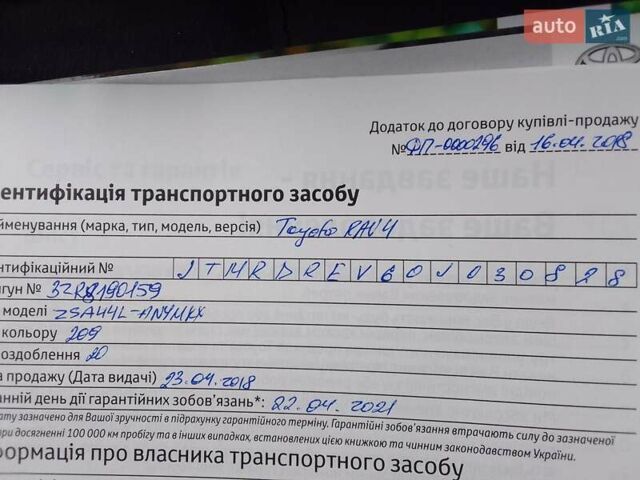 auto RIA
.com
Додаток до договору купівлі-продажу
№ ФП-0000296 від 16.04.2018
ентифікація транспортного засобу
йменування (марка, тип, модель, версія) Toyota RAV4
нтифікаційний № JTMRDREV60J030828
гун № 3ZRB190159
моделі ZSA44L-ANYMKX
кольору 209
оздоблення 20
а продажу (Дата видачі) 23.04.2018
анній день дії гарантійних зобов'язань*: 22.04.2021
ату зазначено для Вашої зручності в підрахунку гарантійного терміну. Гарантійні зобов'язання втрачають силу до зазначеної
при досягненні 100 000 км пробігу та в інших випадках, встановлених цією книжкою та чинним законодавством України.
формація про власника транспортного засобу